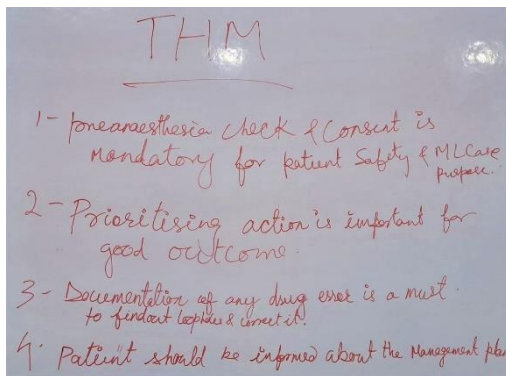 THM
1- preanaesthesia check & Consent is
Mandatory for patient Safety & MLCase
purpose.
2- Prioritising action is important for
good outcome.
3- Documentation of any drug error is a must.
to findout loopholes & correct it.
4. Patient should be informed about the Management plan